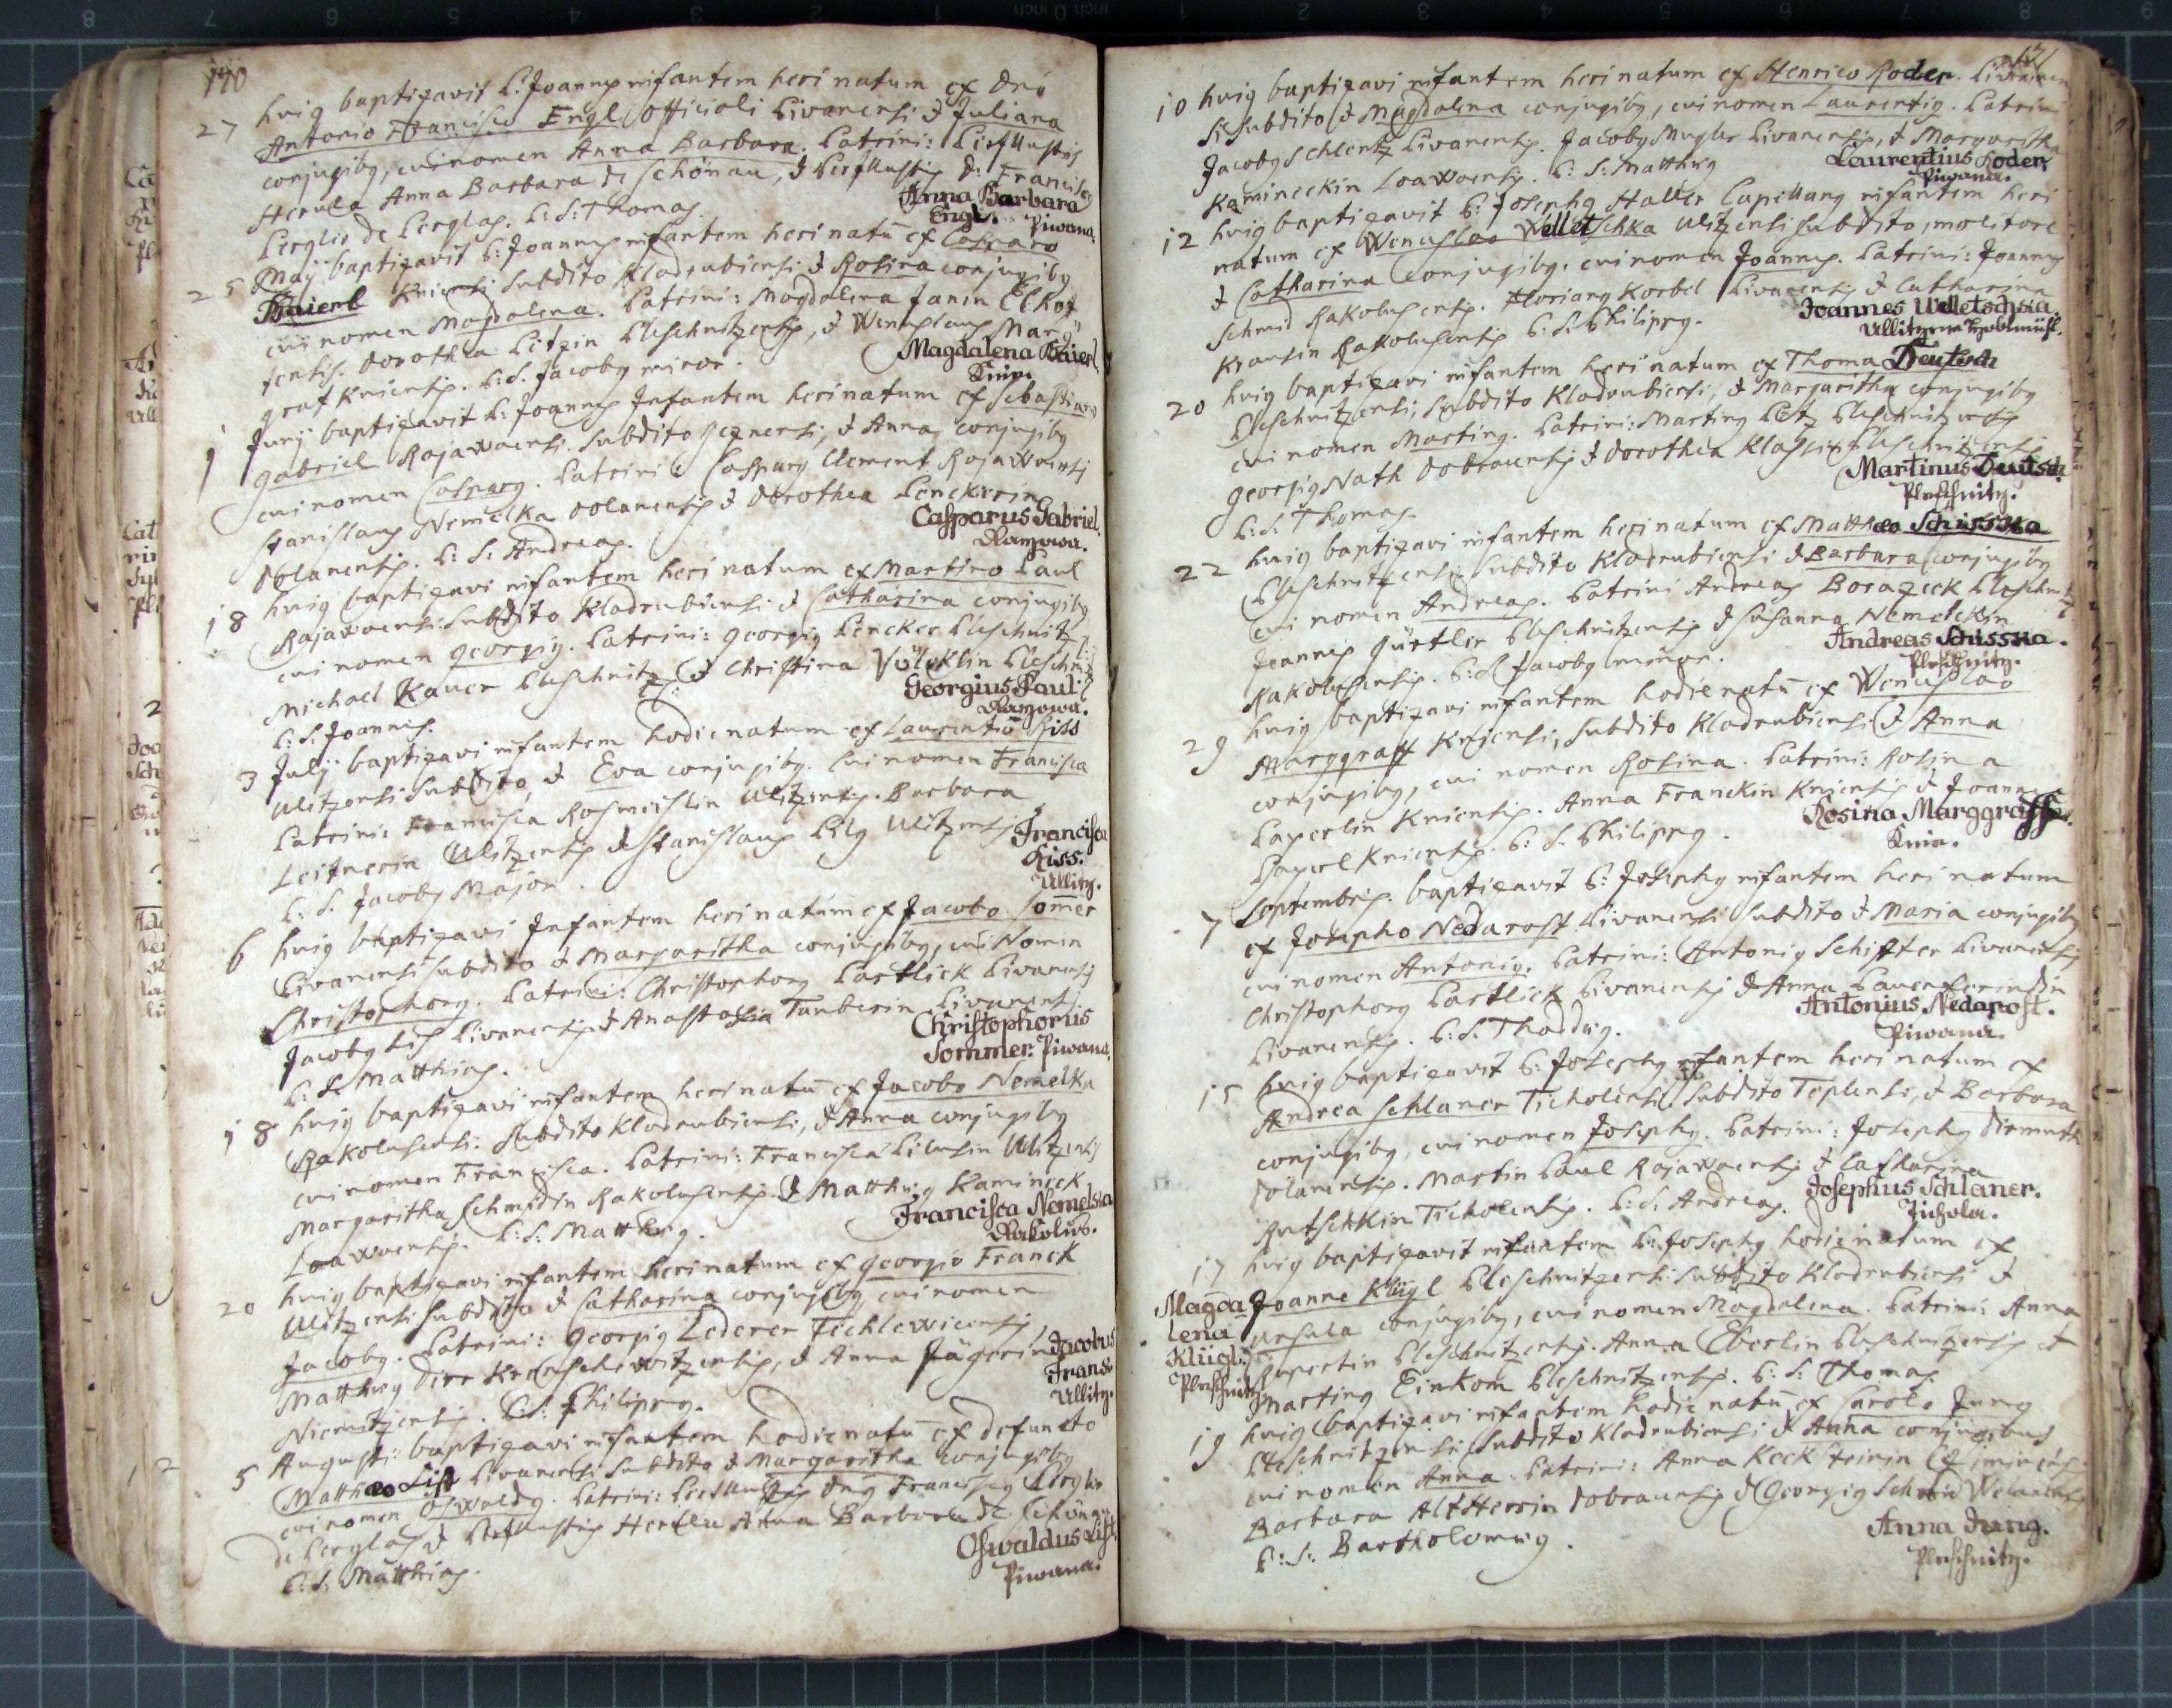 170
27 huig baptizavit P: Joannes infantem heri natum ex Dno
Antonio Francisco Engl officioli Piwanensi & Juliana
conjugibg, cui nomen Anna Barbara. Patrini: Perillustris
Herula Anna Barbara de Schönau, & Perillustris D: Franciscg
Perglis de Perglas. P: S: Thomas.
Anna Barbara
Engl. Piwana.
25 Maÿ baptizavit P: Joannes infantem heri natū ex Casparo
Baierl Kniensi subdito Kladrubiensi & Rosina conjugibg
cui nomen Magdalena. Patrini: Magdalena Janin
Dorothea Petzin Pleschnitzensis, & Wenceslaus Marg
graf Kniensis. P: S. Jacobg minor.
Magdalena Baierl
Knie.
1 Junÿ baptizavit P: Joannes Infantem heri natum ex Sebastiano
Gabriel Rajawaensi subdito & Anna conjugibg
cui nomen Casparg. Patrini: Casparg Clement Rajawaensis
Stanislaus Nemelka Dolanensis & Dorothea Penckerin
Dolanensis. P: S: Andreas.
Casparus Gabriel.
Razowa.
18 huig baptizavi infantem heri natum ex Martino Paul
Rajawaensi subdito Kladrubiensi & Catharina conjugibg
cui nomen Georgig. Patrini: Georgig Pencker Pleschnitz:
Michael Kauer Pleschnitz: & Christina Völcklin Pleschnitz
P: S: Joannes.
Georgius Paul
Razowa.
3 Julÿ baptizavi infantem hodie natum ex Laurentio Riss
Ulitzensi subdito, & Eva conjugibg. Cui nomen Francisca
Patrini: Francisca Rosmeislin Ulitzensis. Barbara
Leitnerin Ulitzensis & Stanislaus Pilg Ulitzensis
P. S. Jacobg Major.
Francisca
Riss.
Ullitz.
6 huig baptizavi Infantem heri natum ex Jacobo Som̄er
Piwanensi subdito & Margaritha conjugibg, cui Nomen
Christophorg. Patrini: Christophorg Partlick Piwanensis
Jacobg Piwanensis & Anastasia Tauberin Piwanensis.
P: S: Matthias.
Christophorus
Sommer. Piwana.
18 huig baptizavi infantem heri natū ex Jacobo Nemelka
Rakolusensi. Subdito Kladrubiensi, & Anna conjugibg
cui nomen Francisca. Patrini: Francisca Ulitzensis
Margaritha Schmidin Rakolusensis & Matthig Kamineck
Loawaensis. P: S: Matthig.
Francisca Nemelka
Rakolus.
20 huig baptizavi infantem heri natum ex Georgio Franck
Ulitzensi subdito & Catharina conjugibg cui nomen
Jacobg. Patrini: Georgig Lederer
Matthig & Anna Jägerin
P: S: Philippg.
Jacobus
Franck
Ullitz.
5 Augusti: baptizavi infantem hodie natū ex defuncto
Matthæo List Piwanensi subdito & Margaritha conjugibg
cui nomen Oswaldg. Patrini: Perillustris Dng Franciscg Perglis
de Perglas & Perillustris Herula Anna Barbara de Schönau
P: S: Matthias.
Oswaldus List.
Piwana.
171
10 huig baptizavi infantem heri natum ex Henrico Roder. Piwanen
si subdito & Magdalena conjugibg, cui nomen Laurentig. Patrini
Jacobg Schlentz Piwanensis. Jacobg Mugler Piwanensis, & Margaritha
Kamineckin Loawaensis. P: S: Matthig
Laurentius Roder.
Piwana.
12 huig baptizavit P: Josephg Haller Capellang infantem heri
natum ex Wenceslao Welletschka Ulitzensi subdito, molitore
& Catharina conjugibg. cui nomen Joannes. Patrini: Joannes
Schmid Rakolusensis. Floriang Korbel Piwanensis & Catharina
Krausin Rakolusensis P: S: Philippg.
Joannes Welletschka.
20 huig baptizavi infantem heri natum ex Thoma Deutsch
Pleschnitzensi, subdito Kladrubiensi, & Margaritha conjugibg
cui nomen Marting. Patrini: Marting Petz Pleschnitzensis
Georgig Nath Dobrauensis & Dorothea Pleschnitzensis
P: S: Thomas.
Martinus Deutsch.
Pleschnitz.
22 huig baptizavi infantem heri natum ex Matthæo Schisska
Pleschnitzensi subdito Kladrubiensi & Barbara conjugibg
cui nomen Andreas. Patrini Andreas Borazeck Pleschnitz
Joannes Gürtler Pleschnitzensis & Susanna Nemetckin
Rakolusensis. P: S: Jacobg minor.
Andreas Schisska.
Pleschnitz.
29 huig baptizavi infantem hodie natū ex Wenceslao
Marggraff Kniensi, subdito Kladrubiensi & Anna
conjugibg, cui nomen Rosina. Patrini: Rosina
Paxerlin Kniensis. Anna Franckin Kniensis & Joannes
Kniensis. P: S. Philippg.
Rosina Marggraffin.
Knie.
7 Septembris. baptizavit P: Josephg infantem heri natum
ex Josepho Nedarost Piwanensi subdito & Maria conjugibg
cui nomen Antonig. Patrini: Antonig Schiffter Piwanensis
Christophorg Partlick Piwanensis & Anna
Piwanensis. P: S: Thaddæg.
Antonius Nedarost.
Piwana.
15 huig baptizavit P: Josephg infantem heri natum ex
Andrea Schlaner Ticholensi. subdito Teplensi, & Barbara
conjugibg, cui nomen Josephg. Patrini: Josephg Diemuth
Dolanensis. Martin Paul Rajawaensis & Catharina
Rutschkin Ticholensis. P: S: Andreas.
Josephus Schlaner.
Tichola.
17 huig baptizavit infantem P: Josephg hodie natum ex
Joanne Klügl Pleschnitzensi subdito Kladrubiensi &
Ursula conjugibg, cui nomen Magdalena. Patrini: Anna
Rupertin Pleschnitzensis. Anna Eberlin Pleschnitzensis &
Marting Einkom Pleschnitzensis. P: S: Thomas.
Magda
lena
Klügl.
Pleschnitz.
19 huig baptizavi infantem hodie natū ex Carolo Jung
Pleschnitzensi subdito Kladrubiensi & Anna conjugibus
cui nomen Anna. Patrini: Anna Kecksteinin
Barbara AltHerrin Dobrauensis & Georgig Schmid
P: S: Bartholomæg.
Anna Jung.
Pleschnitz.